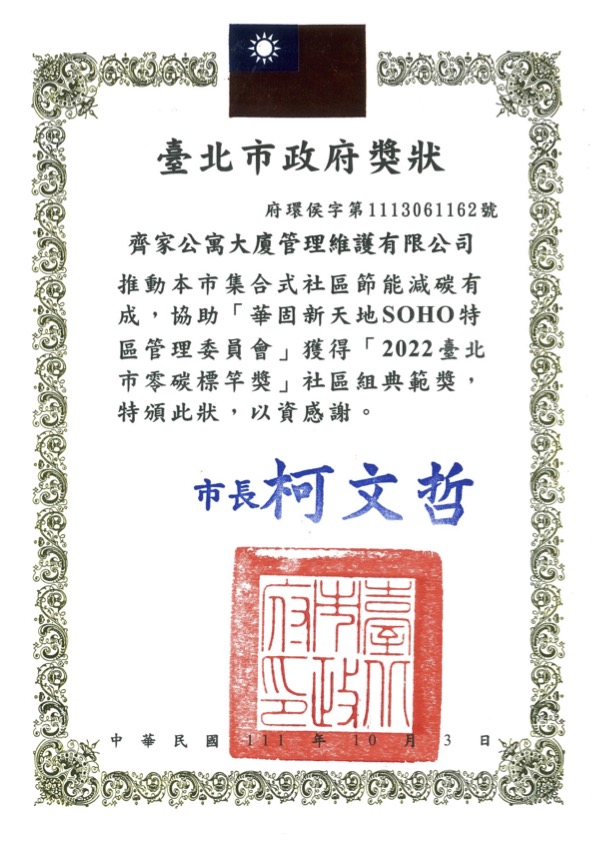 臺北市政府獎狀
府環侯字第1113061162號
齊家公寓大廈管理維護有限公司
推動本市集合式社區節能減碳有
成，協助「華固新天地SOHO特
區管理委員會」獲得「2022臺北
市零碳標竿獎」社區組典範獎，
特頒此狀，以資感謝。
市長柯文哲
臺北市政府印
中華民國111年10月3日